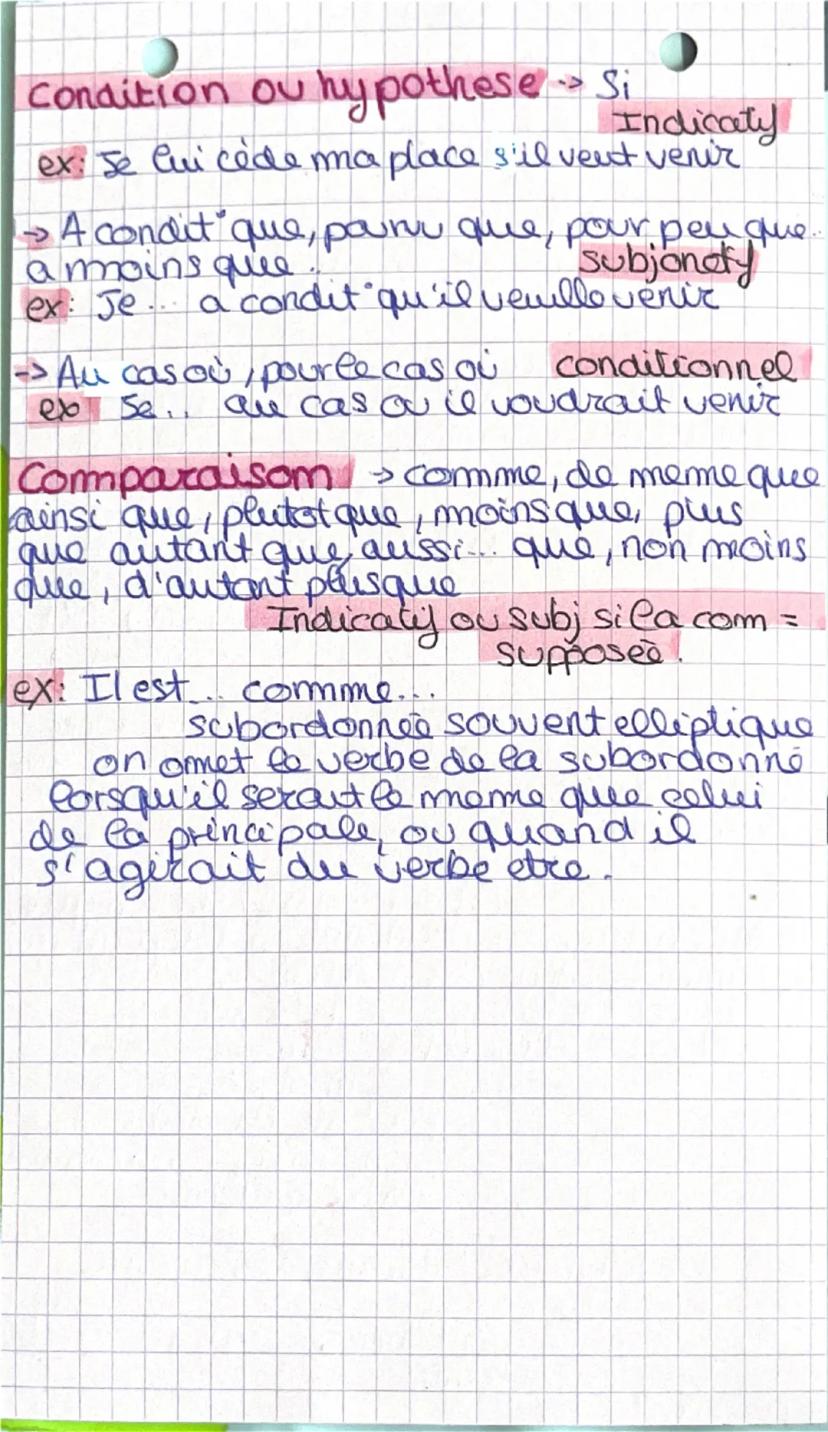 Condition ou hypothese -> Si
Indicatif
ex: Je lui cède ma place s'il veut venir
-> A condit° que, parvu que, pour peu que.
a moins que.
subjonctif
ex: Je... a condit° qu'il veuille venir
-> Au cas où, pour le cas où conditionnel
ex Je... au cas ou il voudrait venir
Comparaison -> comme, de meme que
ainsi que, plutot que, moins que, plus
que autant que, aussi... que, non moins
que, d'autant plus que
Indicatif ou subj si la com =
supposée.
ex: Il est... comme...
subordonnée souvent elliptique
on omet le verbe de la subordonné
lorsqu'il serait le meme que celui
de la principale, ou quand il
s'agirait du verbe etre.